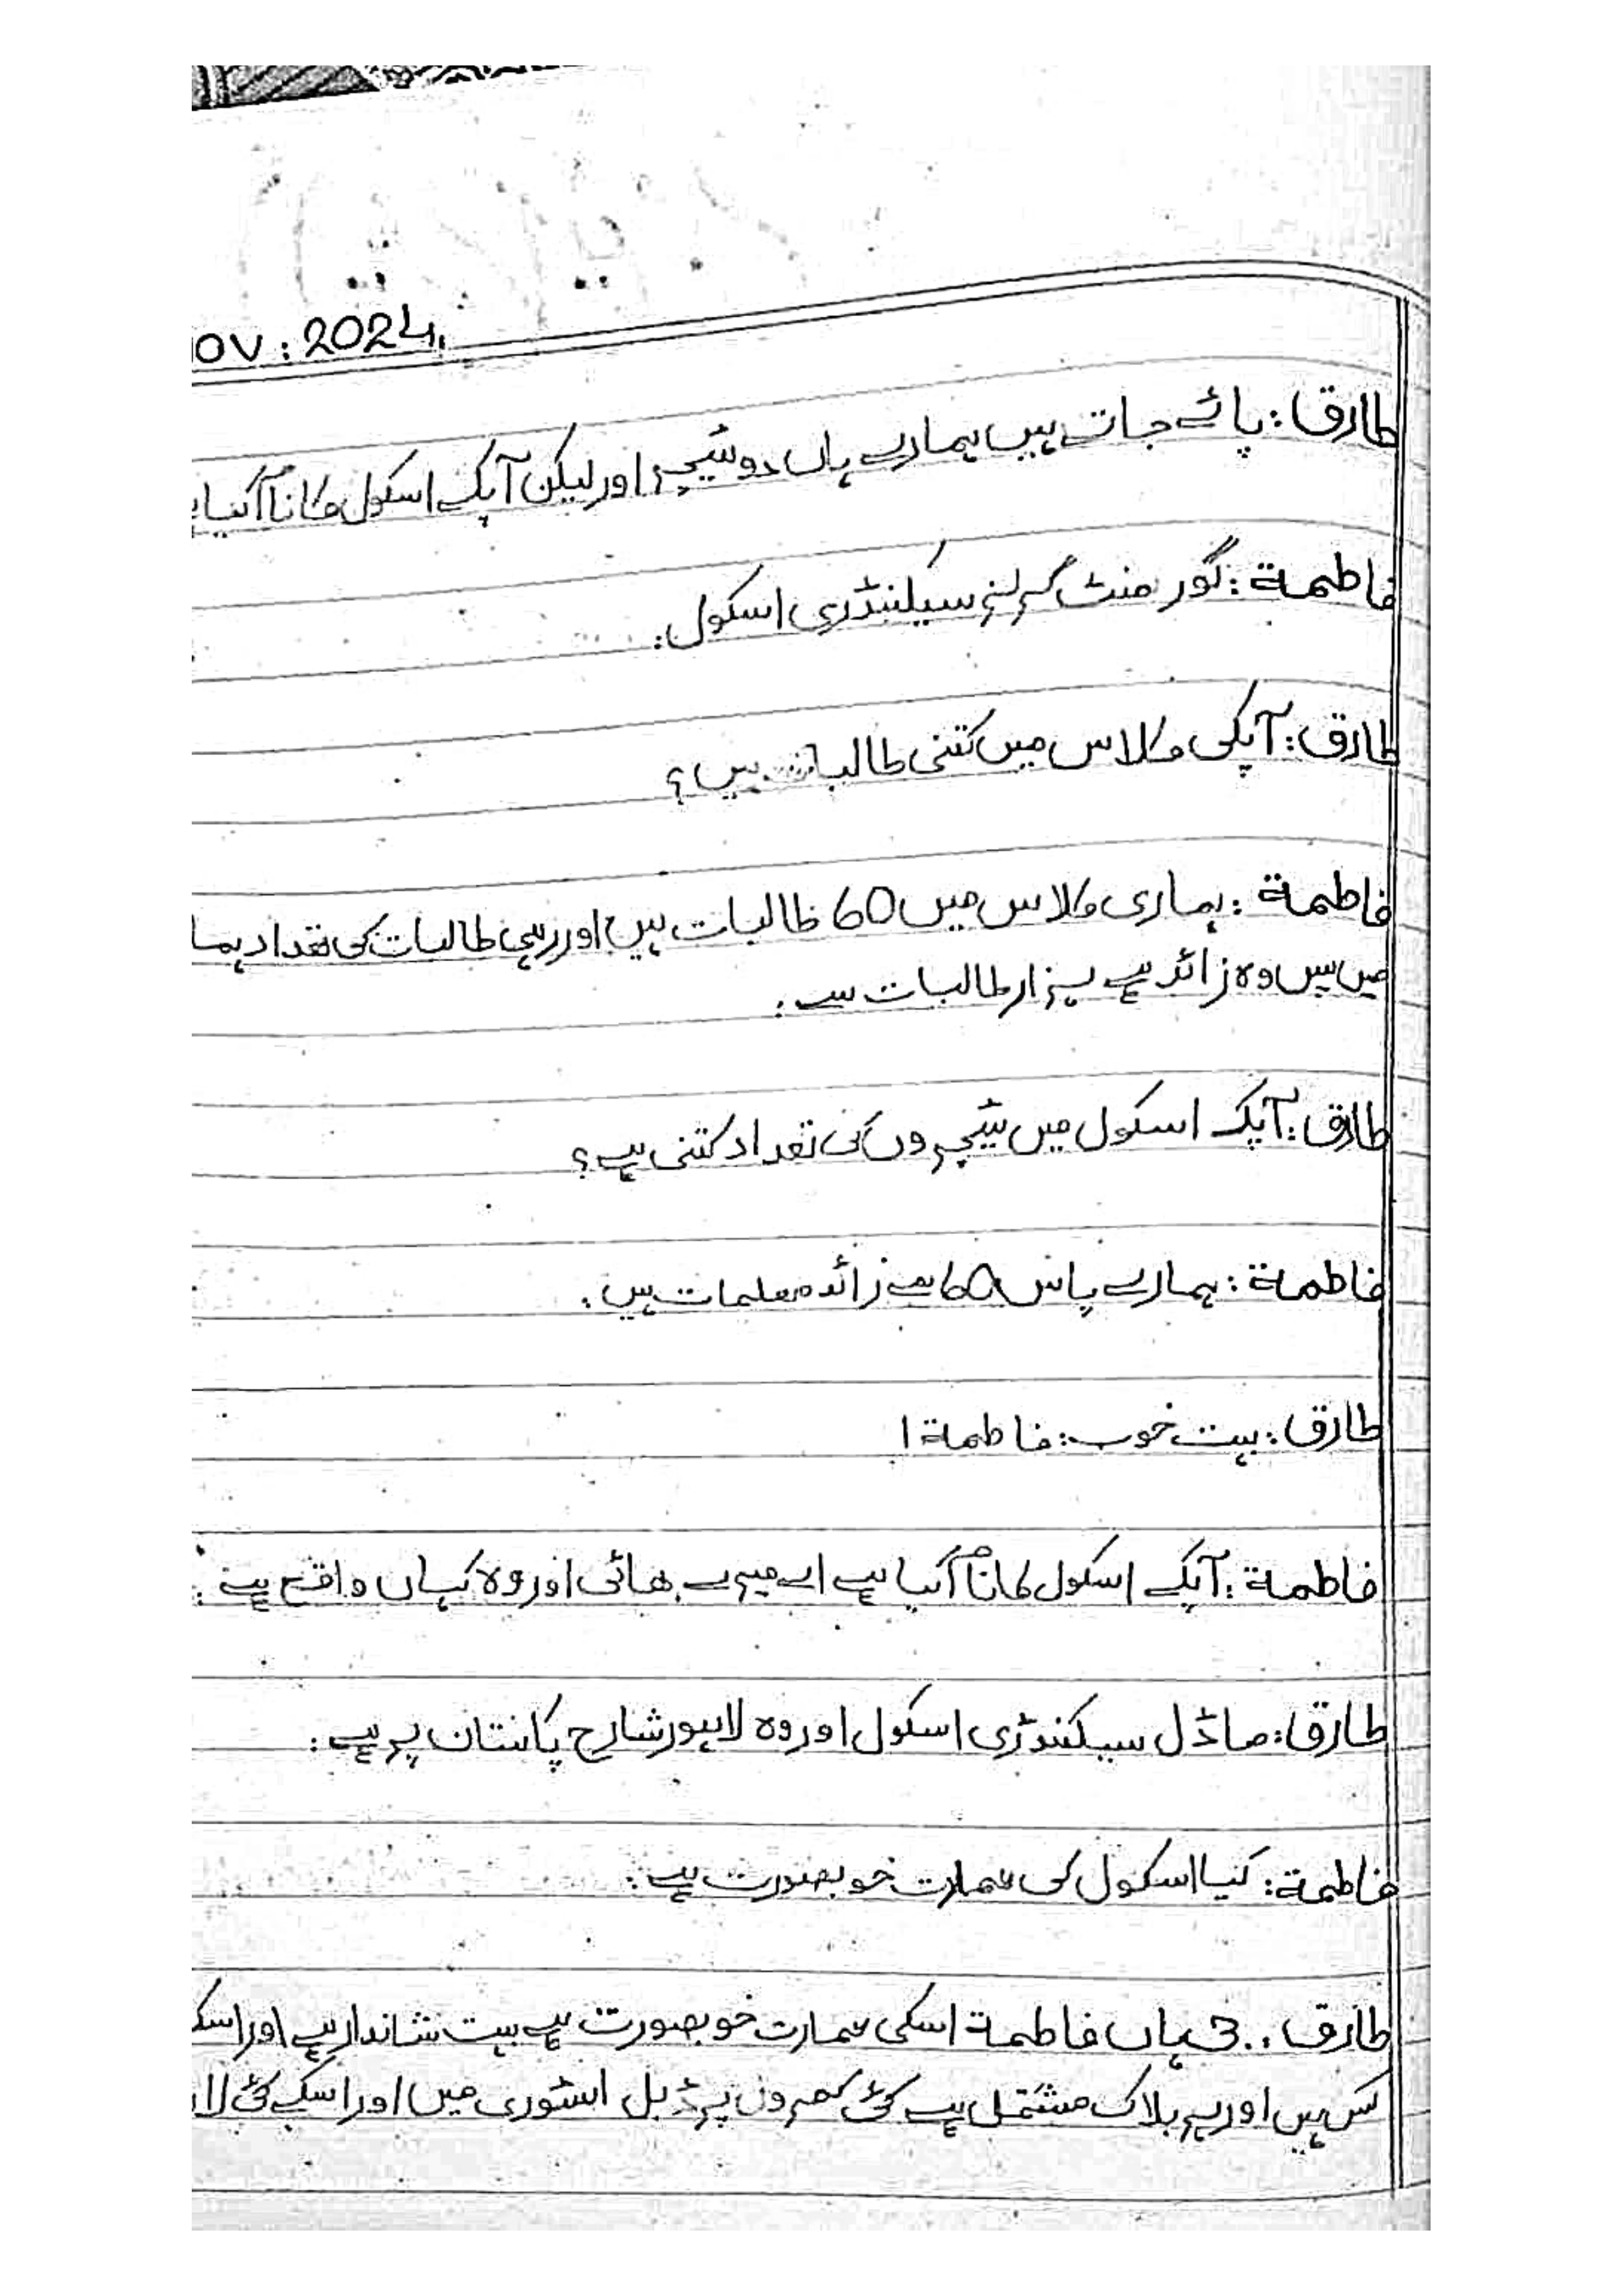 OV : 2024.
طارق: پائے جاتے ہیں ہمارے ہاں دو ٹیچر اور لیکن آپکے اسکول کا نام کیا
فاطمة: گورمنٹ گرلنر سیکنڈری اسکول.
طارق: آپکی کلاس میں کتنی طالبات ہیں؟
فاطمة: ہماری کلاس میں 60 طالبات ہیں اور رہی طالبات کی تعداد ہما
میں پس وہ زائد ہے ہزار طالبات سے.
طارق: آپکے اسکول میں ٹیچروں کی تعداد کتنی ہے؟
فاطمة: ہمارے پاس 60 سے زائد معلمات ہیں.
طارق: بہت خوب: فاطمة!
فاطمة: آپکے اسکول کا نام کیا ہے اے میرے بھائی اور وہ کہاں واقع ہے:
طارق: ماڈل سیکنڈری اسکول اور وہ لاہور شارح پاکستان پر ہے:
فاطمة: کیا اسکول کی عمارت خوبصورت ہے:
طارق: جی ہاں فاطمة اسکی عمارت خوبصورت ہے بہت شاندار ہے اور اسک
کس ہیں اور ہر بلاک مشتمل ہے کئی کمروں پر ڈبل اسٹوری میں اور اسکے کئی لا